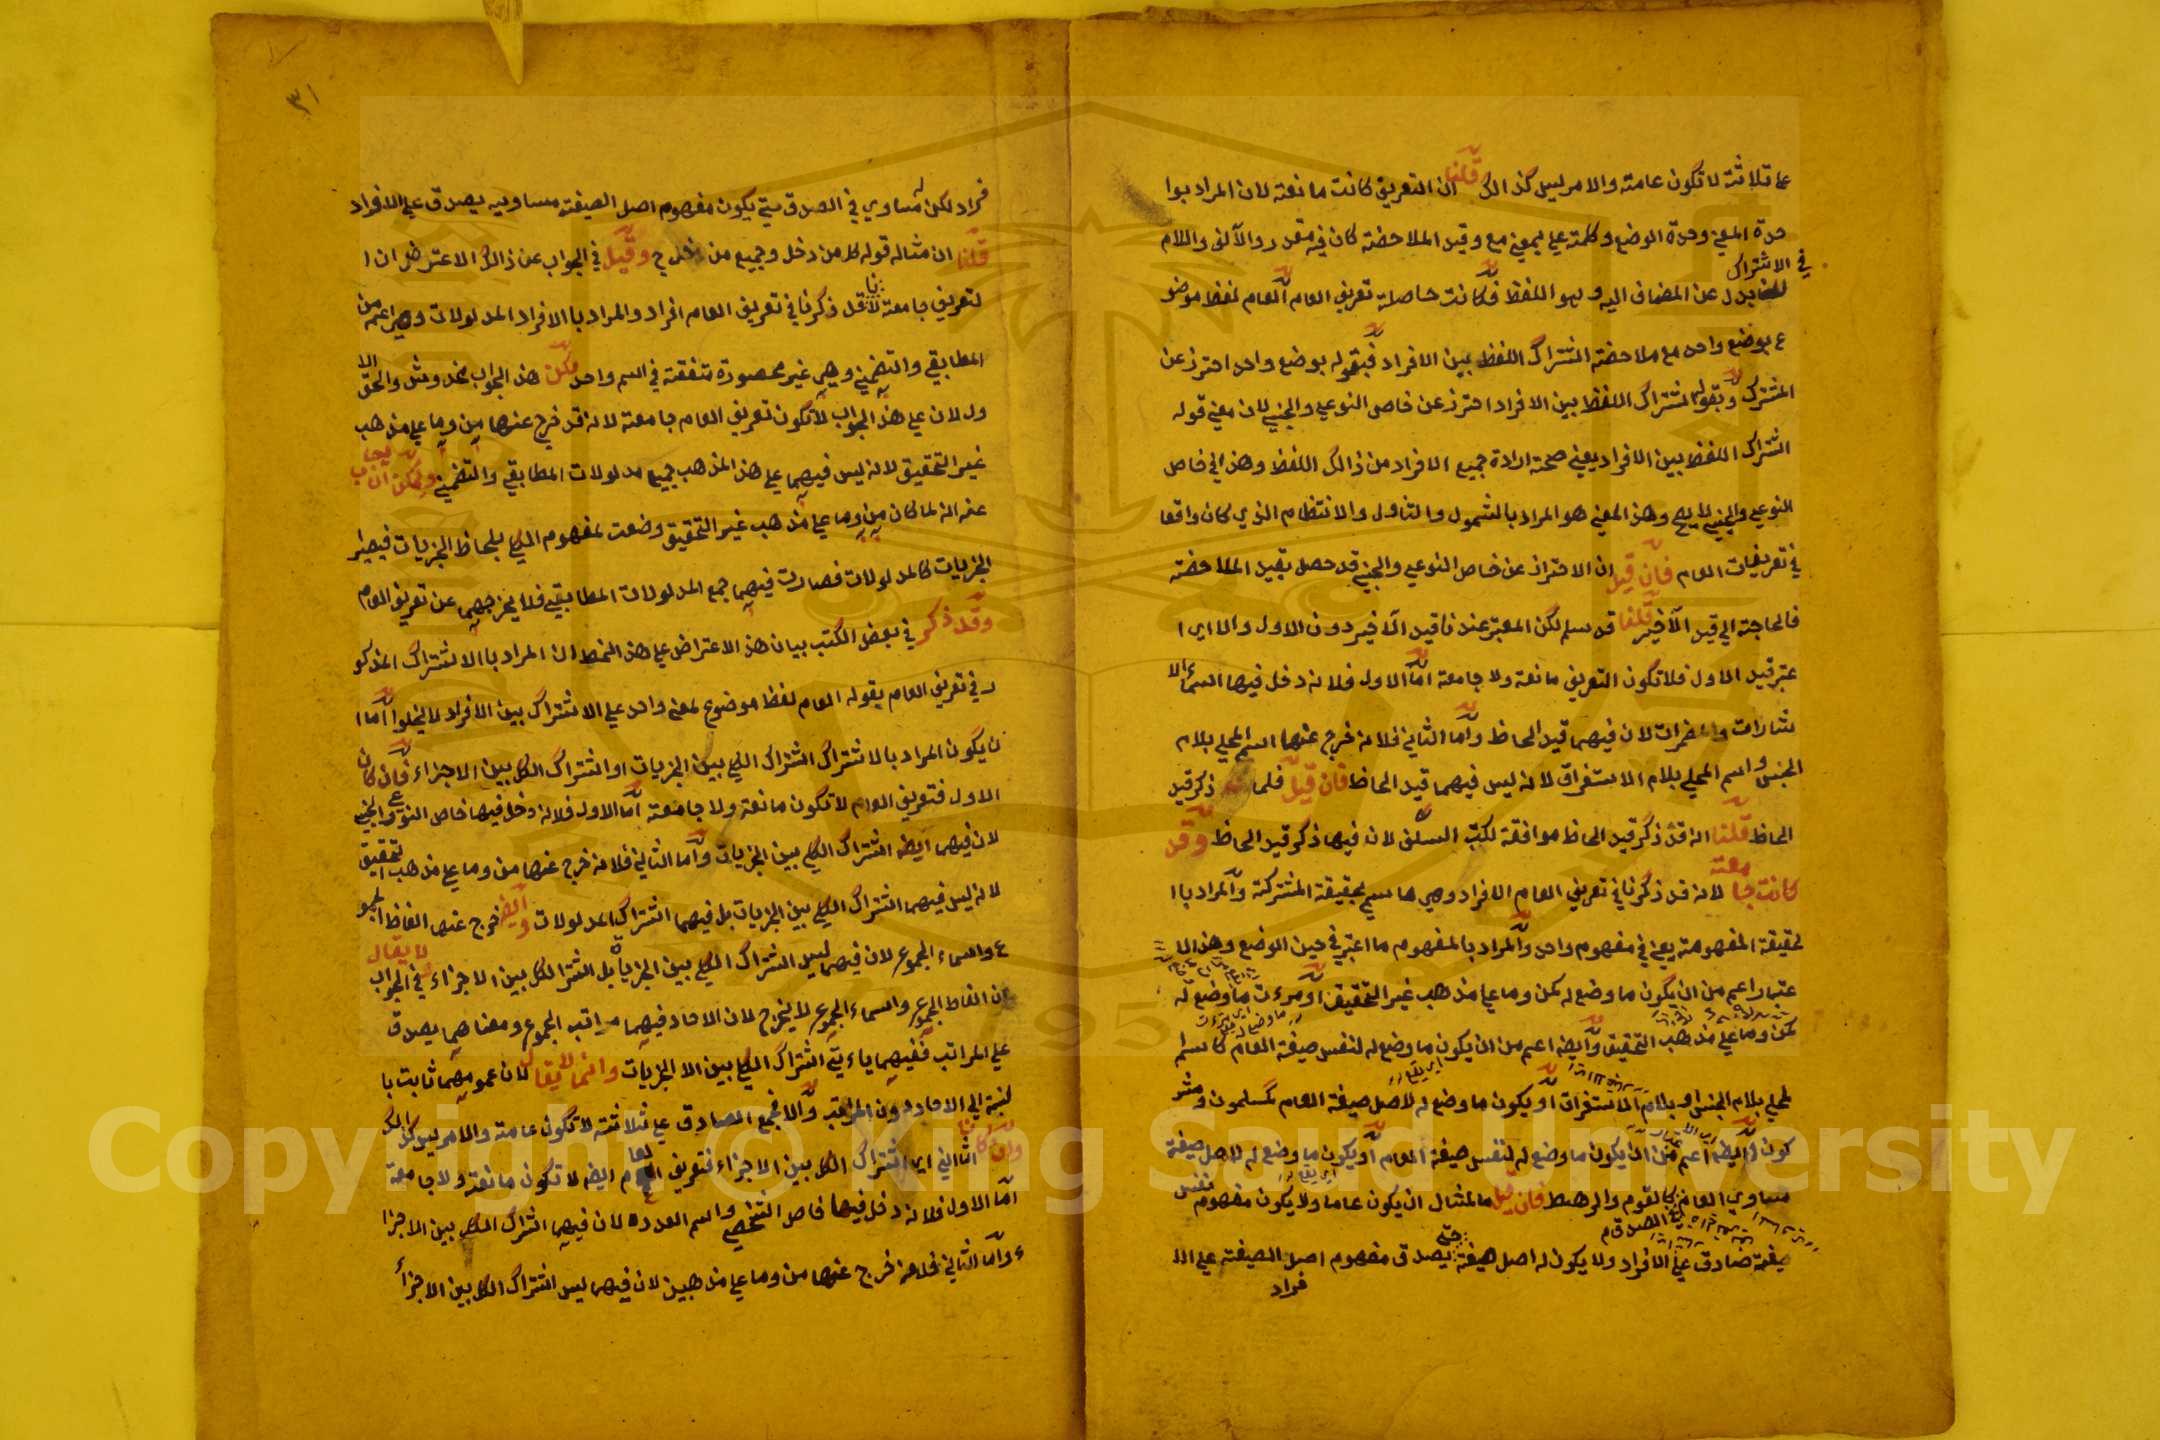 على ثلاثة لا تكون عامة والامر ليس كذالك قلنا ان التعريف كانت مانعة لان المراد بوا
حدة المعنى وحدة الوضع وكلمة على بمعنى مع وقيد الملاحضة كان فيه مقدر والآلف واللام
في الاشتراك
بدل عن المضاف اليه وهو اللفظ فكانت حاصلة تعريف العام العام لفظ موضو
ع بوضع واحد مع ملاحضة اشتراك اللفظ بين الافراد فبقوله بوضع واحد احترز عن
المشترك وبقوله اشتراك اللفظ بين الافراد احترز عن خاص النوعي والجنسي لان معنى قوله
اشتراك اللفظ بين الافراد يعني صحة ارادة جميع الافراد من ذالك اللفظ وهذا في خاص
النوعي والجنسي لا يصح وهذا المعنى هو المراد بالشمول والتناول والانتظام الذي كان واقعا
في تعريفات العام فان قيل ان الاحتراز عن خاص النوعي والجنسي قد حصل بقيد الملاحضة
فالحاجة الى قيد الآخير قلنا قد سلم لكن المعتبر عندنا قيد الآخير دون الاول والا اي ا
عتبر قيد الاول فلا تكون التعريف مانعة ولا جامعة اما الاول فلانه دخل فيها اسماء الا
شارات والمضمرات لان فيهما قيد لحاظ واما الثاني فلانه خرج عنها اسم المحلى بلام
الجنس واسم المحلى بلام الاستغراق لانه ليس فيهما قيد لحاظ فان قيل فلما ذكر قيد
لحاظ قلنا انه قد ذكر قيد لحاظ موافقة لكتب السلف لان فيها ذكر قيد لحاظ وقد
كانت جامعة لانه قد ذكرنا في تعريف العام الافراد وهي هاسم لحقيقة المشتركة والمراد با
لحقيقة المفهومة يعني في مفهوم واحد والمراد بالمفهوم ما اعتبر في حين الوضع وهذا الا
عتبار اعم من ان يكون ما وضع له كمن وما على مذهب غير التحقيق او مرءت ما وضع له
كمن وما على مذهب التحقيق وايضه اعم من ان يكون ما وضع له لنفس صيغة العام كاسم ا
لمحلى بلام الجنس او بلام الاستغراق او يكون ما وضع له لاصل صيغة العام كمسلمون ومشر
كون وايضه اعم من ان يكون ما وضع له لنفس صيغة العام او يكون ما وضع له لاصل صيغة
مساوي العام كالقوم والرهط فان قيل ما لمثال ان يكون عاما ولا يكون مفهوم نفس
صيغة صادق على الافراد ولا يكون له اصل صيغة حتى يصدق مفهوم اصل الصيغة على الا
فراد
٣١
فراد لكن له مساوي في الصدق حتى يكون مفهوم اصل الصيغة مساويه يصدق على الافراد
قلنا ان مثاله قوله كل من دخل وجميع من دخل وقيل في الجواب عن ذالك الاعتراض ان ا
لتعريف جامعة لانا قد ذكرنا في تعريف العام افراد والمراد با الافراد المدلولات وهي اعم من
المطابقي والتضمني وهي غير محصورة متفقة في اسم واحد لكن هذا الجواب مخدوش والحق الا
ول لان على هذا الجواب لا تكون تعريف العام جامعة لانه قد خرج عنها من وما على مذهب
غير التحقيق لانه ليس فيهما على هذا المذهب جميع مدلولات المطابقي والتضمني ويمكن ان يجاب
عنه انه لما كان من وما على مذهب غير التحقيق وضعت لمفهوم الكلي بلحاظ الجزيات فيصير
الجزيات كالمدلولات فصارت فيهما جمع المدلولات المطابقي فلا يخرجهما عن تعريف العام
وقد ذكر في بعض الكتب بيان هذا الاعتراض على هذا النمط ان المراد بالاشتراك المذكو
ر في تعريف العام بقوله العام لفظ موضوع لمعنى واحد على الاشتراك بين الافراد لا يخلوا اما ا
ن يكون المراد بالاشتراك اشتراك الكلي بين الجزيات او اشتراك الكل بين الاجزاء فان كان
الاول فتعريف العام لا تكون مانعة ولا جامعة اما الاول فلانه دخل فيها خاص النوعي والجنسي
لان فيهما ايضه اشتراك الكلي بين الجزيات واما الثاني فلانه خرج عنها من وما على مذهب التحقيق
لانه ليس فيهما اشتراك الكلي بين الجزيات بل فيهما اشتراك المدلولات وايضه خرج عنها الفاظ الجمو
ع واسماء الجموع لان فيهما ليس اشتراك الكلي بين الجزياة بل اشتراك الكل بين الاجزاء لا يقال في الجواب
ان الفاظ الجموع واسماء الجموع لا يخرج لان الاحاد فيهما مراتب الجموع ومفناهما يصدق
على المراتب ففيهما ياءتي اشتراك الكلي بين الا الجزيات وانما لا يقال لان عمومهما ثابت با
لنسبة الى الاحاد دون المراتب والا فجمع الصادق على ثلاثة لا تكون عامة والامر ليس كذالك
وان كان الثاني اي اشتراك الكل بين الاجزاء فتعريف العام ايضه لا تكون مانعة ولا جامعة
اما الاول فلانه دخل فيها خاص الشخصي واسم العدده لان فيهما اشتراك الكل بين الاجزا
ء واما الثاني فلانه خرج عنها من وما على مذهبين لان فيهما ليس اشتراك الكل بين الاجزاء
Copyright © King Saud University
1957